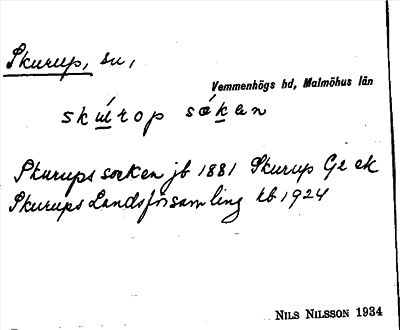 Skurup, sn,
Vemmenhögs hd, Malmöhus län
skúrop sóken
Skurups socken jb 1881 Skurup Ge ek
Skurups Landsförsamling kb 1924
NILS NILSSON 1934